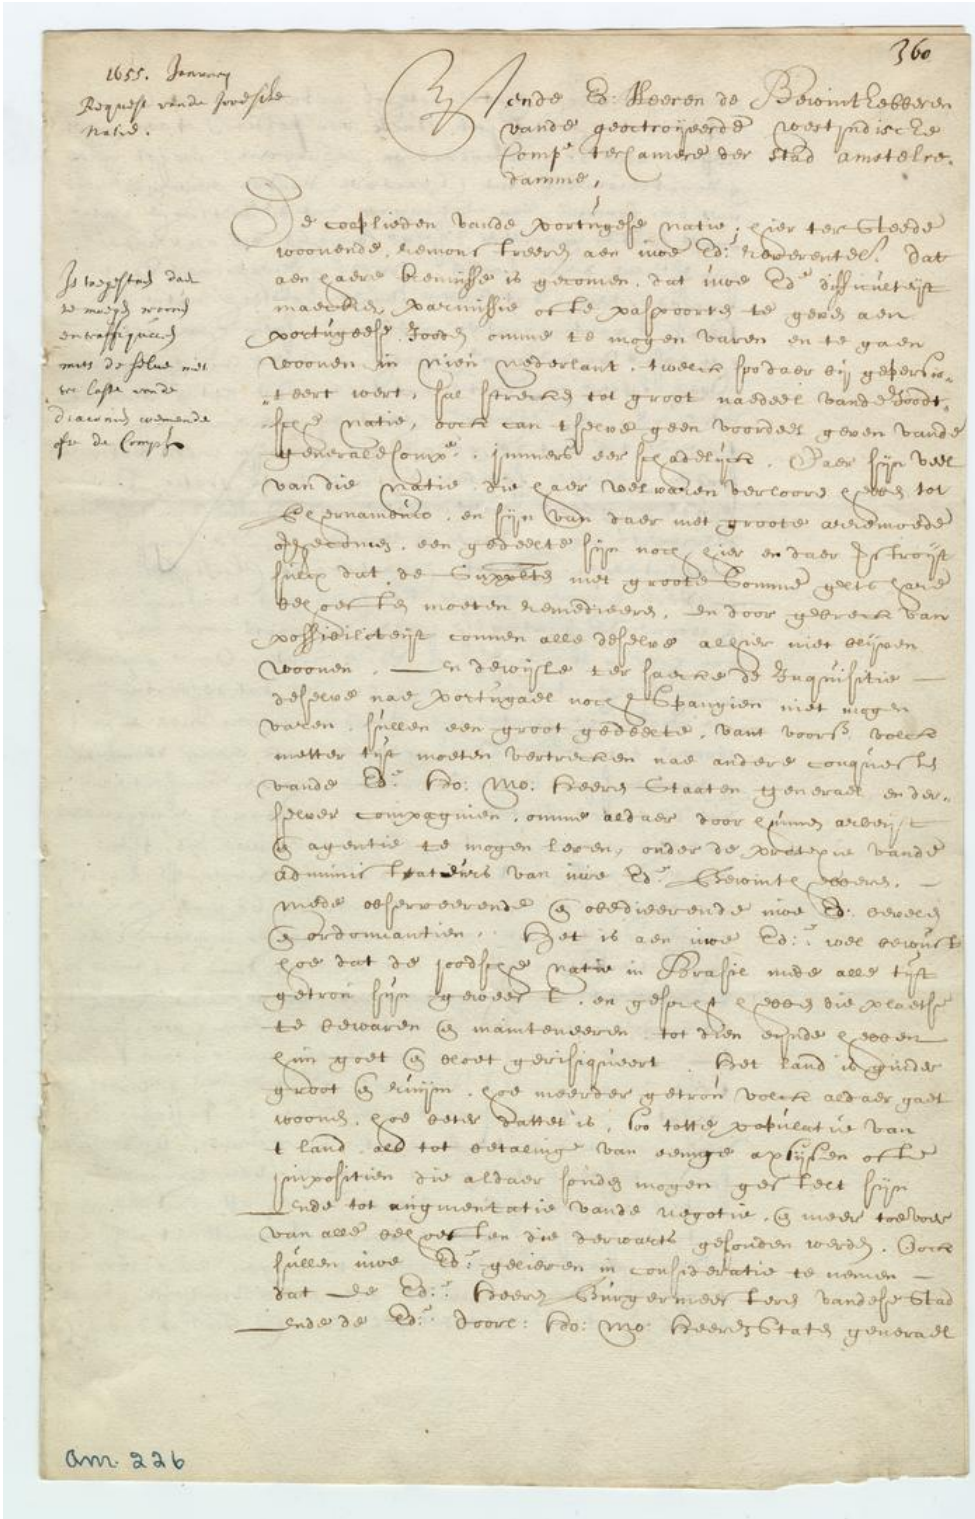 360
1655. January
Request vande Joodsche
Natie.
Aende Ed: Heeren de Bewinthebberen
vande geoctroijeerde westindische
Compe. ter Camere der Stad Amstelre-
damme,
De cooplieden vande portugese natie, hier ter Steede
woonende, remonstreeren aen uwe Ed: reverentel. dat
aen haere kennisse is gecomen, dat uwe Ed. difficulteijt
maecken, parmissie ofte paspoorten te geven aen
portugeese Jooden omme te mogen varen en te gaen
woonen in nieu nederlant, twelck so daer bij gepersis-
teert wert, sal strecken tot groot nadeel vande Joodt-
sche natie, oock can tselve geen voordeel geven vande
generale Compe. immers eer schadelijck. Daer sijn veel
van die natie die haer welvaren verlooren hebben tot
Phernambuco, en sijn van daer met groote arremoede
een gedeelte sijn noch hier en daer
sulcx dat de Supplten met groote Somme gelts hare
behoeften moeten remedieeren, en door gebreck van
possibiliteijt connen alle deselve alhier niet blijven
woonen. En dewijle ter saecke de Inquisitie
deselve nae portugael noch Spangien niet mogen
varen, sullen een groot gedeelte vant voors. volck
metter tijt moeten vertrecken nae andere conquesten
vande Ed. Ho: Mo: Heeren Staaten generael en der-
selver compagnien, omme aldaer door hunnen arbeijt
& agentie te mogen leven, onder de protexie vande
administrateurs van uwe Ed. Bewinthebberen,
mede observeerende & obedieerende uwe Ed. bevelen
& ordonnantien. Het is aen uwe Ed: wel bewust
hoe dat de joodsche natie in Brasil mede alle tijt
getrou sijn geweest, en gesocht hebben die plaetse
te bewaren & mainteneeren tot dien eijnde hebben
hun goet & bloet gerisiqueert. Het land is ginder
groot & ruijm, hoe meerder getrou volck aldaer gaet
woonen, hoe beter dattet is, soo totte populatie van
t land, als tot betalinge van eenige axcijsen ofte
impositien die aldaer souden mogen gestelt sijn
Ende tot augmentatie vande negotie, & meer toevoer
van alle behoeften die derwarts gesonden werden. Oock
sullen uwe Ed. gelieven in consideratie te nemen
dat de Ed: Heeren Burgermeesteren vandese Stad
ende de Ed: Doorl: Ho: Mo: Heeren Staten generael
Is toegestaen dat
se mogen woonen
en traffiqueren
mits de selve niet
ten laste vande
diaconie comende
ofte de Comp.
am. 226